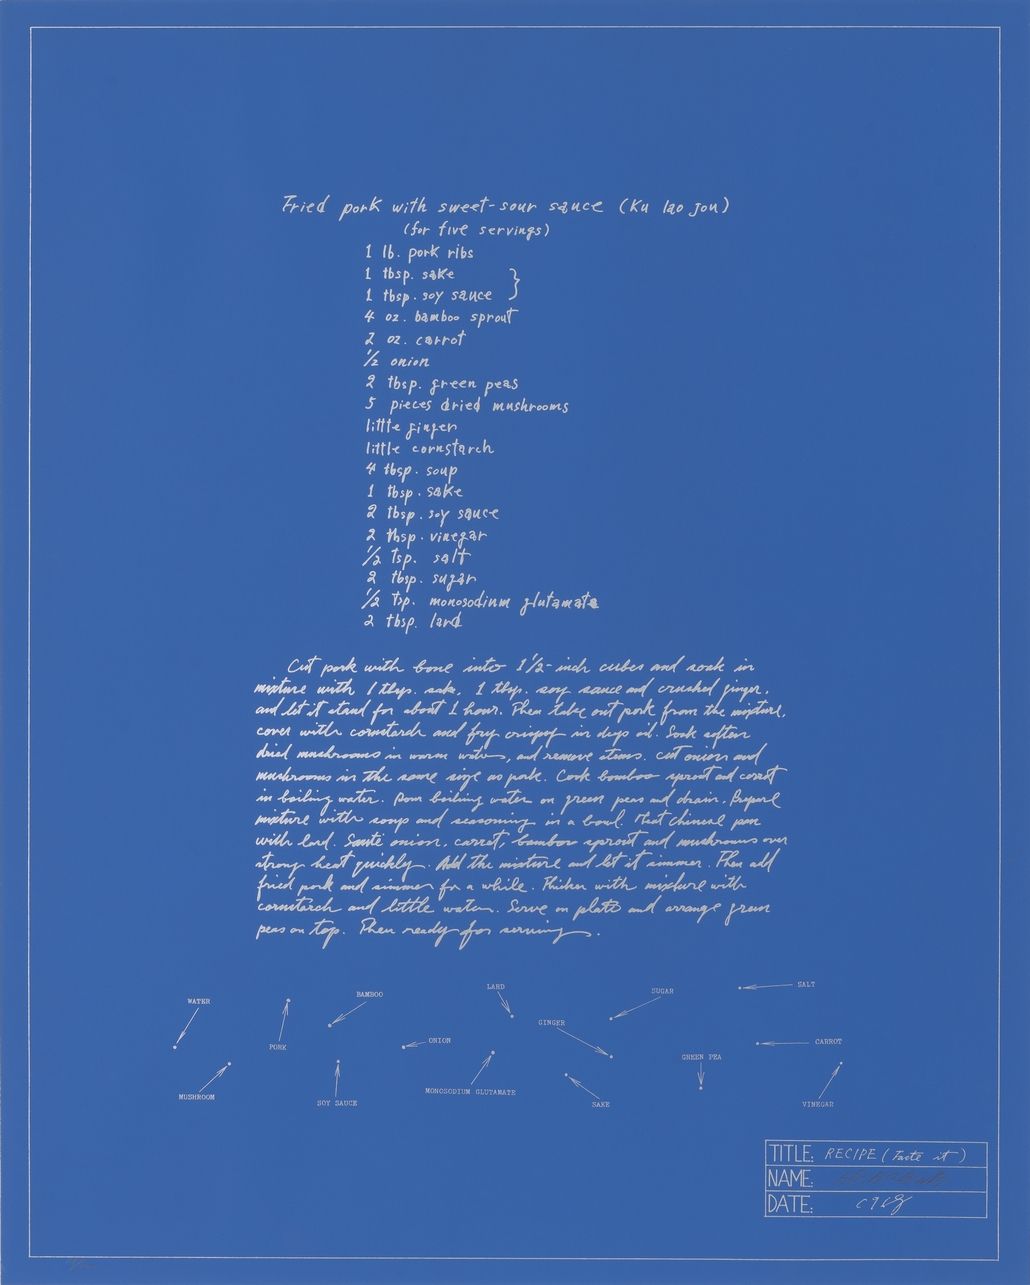 Fried pork with sweet-sour sauce (Ku lao jou)
(for five servings)
1 lb. pork ribs
1 tbsp. sake }
1 tbsp. soy sauce
4 oz. bamboo sprout
2 oz. carrot
1/2 onion
2 tbsp. green peas
5 pieces dried mushrooms
little ginger
little cornstarch
4 tbsp. soup
1 tbsp. sake
2 tbsp. soy sauce
2 tbsp. vinegar
1/2 tsp. salt
2 tbsp. sugar
1/2 tsp. monosodium glutamate
2 tbsp. lard
Cut pork with bone into 1 1/2-inch cubes and soak in
mixture with 1 tbsp. sake, 1 tbsp. soy sauce and crushed ginger,
and let it stand for about 1 hour. Then take out pork from the mixture,
cover with cornstarch and fry crispy in deep oil. Soak soften
dried mushrooms in warm water, and remove stems. Cut onion and
mushrooms in the same size as pork. Cook bamboo sprout and carrot
in boiling water. Pour boiling water on green peas and drain. Prepare
mixture with soup and seasoning in a bowl. Heat chinese pan
with lard. Sauté onion, carrot, bamboo sprout and mushrooms over
strong heat quickly. Add the mixture and let it simmer. Then add
fried pork and simmer for a while. Thicken with mixture with
cornstarch and little water. Serve on plate and arrange green
peas on top. Then ready for serving.
LARD SALT
WATER BAMBOO SUGAR
GINGER
PORK ONION CARROT
GREEN PEA
MUSHROOM MONOSODIUM GLUTAMATE
SOY SAUCE SAKE VINEGAR
TITLE: RECIPE (Taste it)
NAME:
DATE: